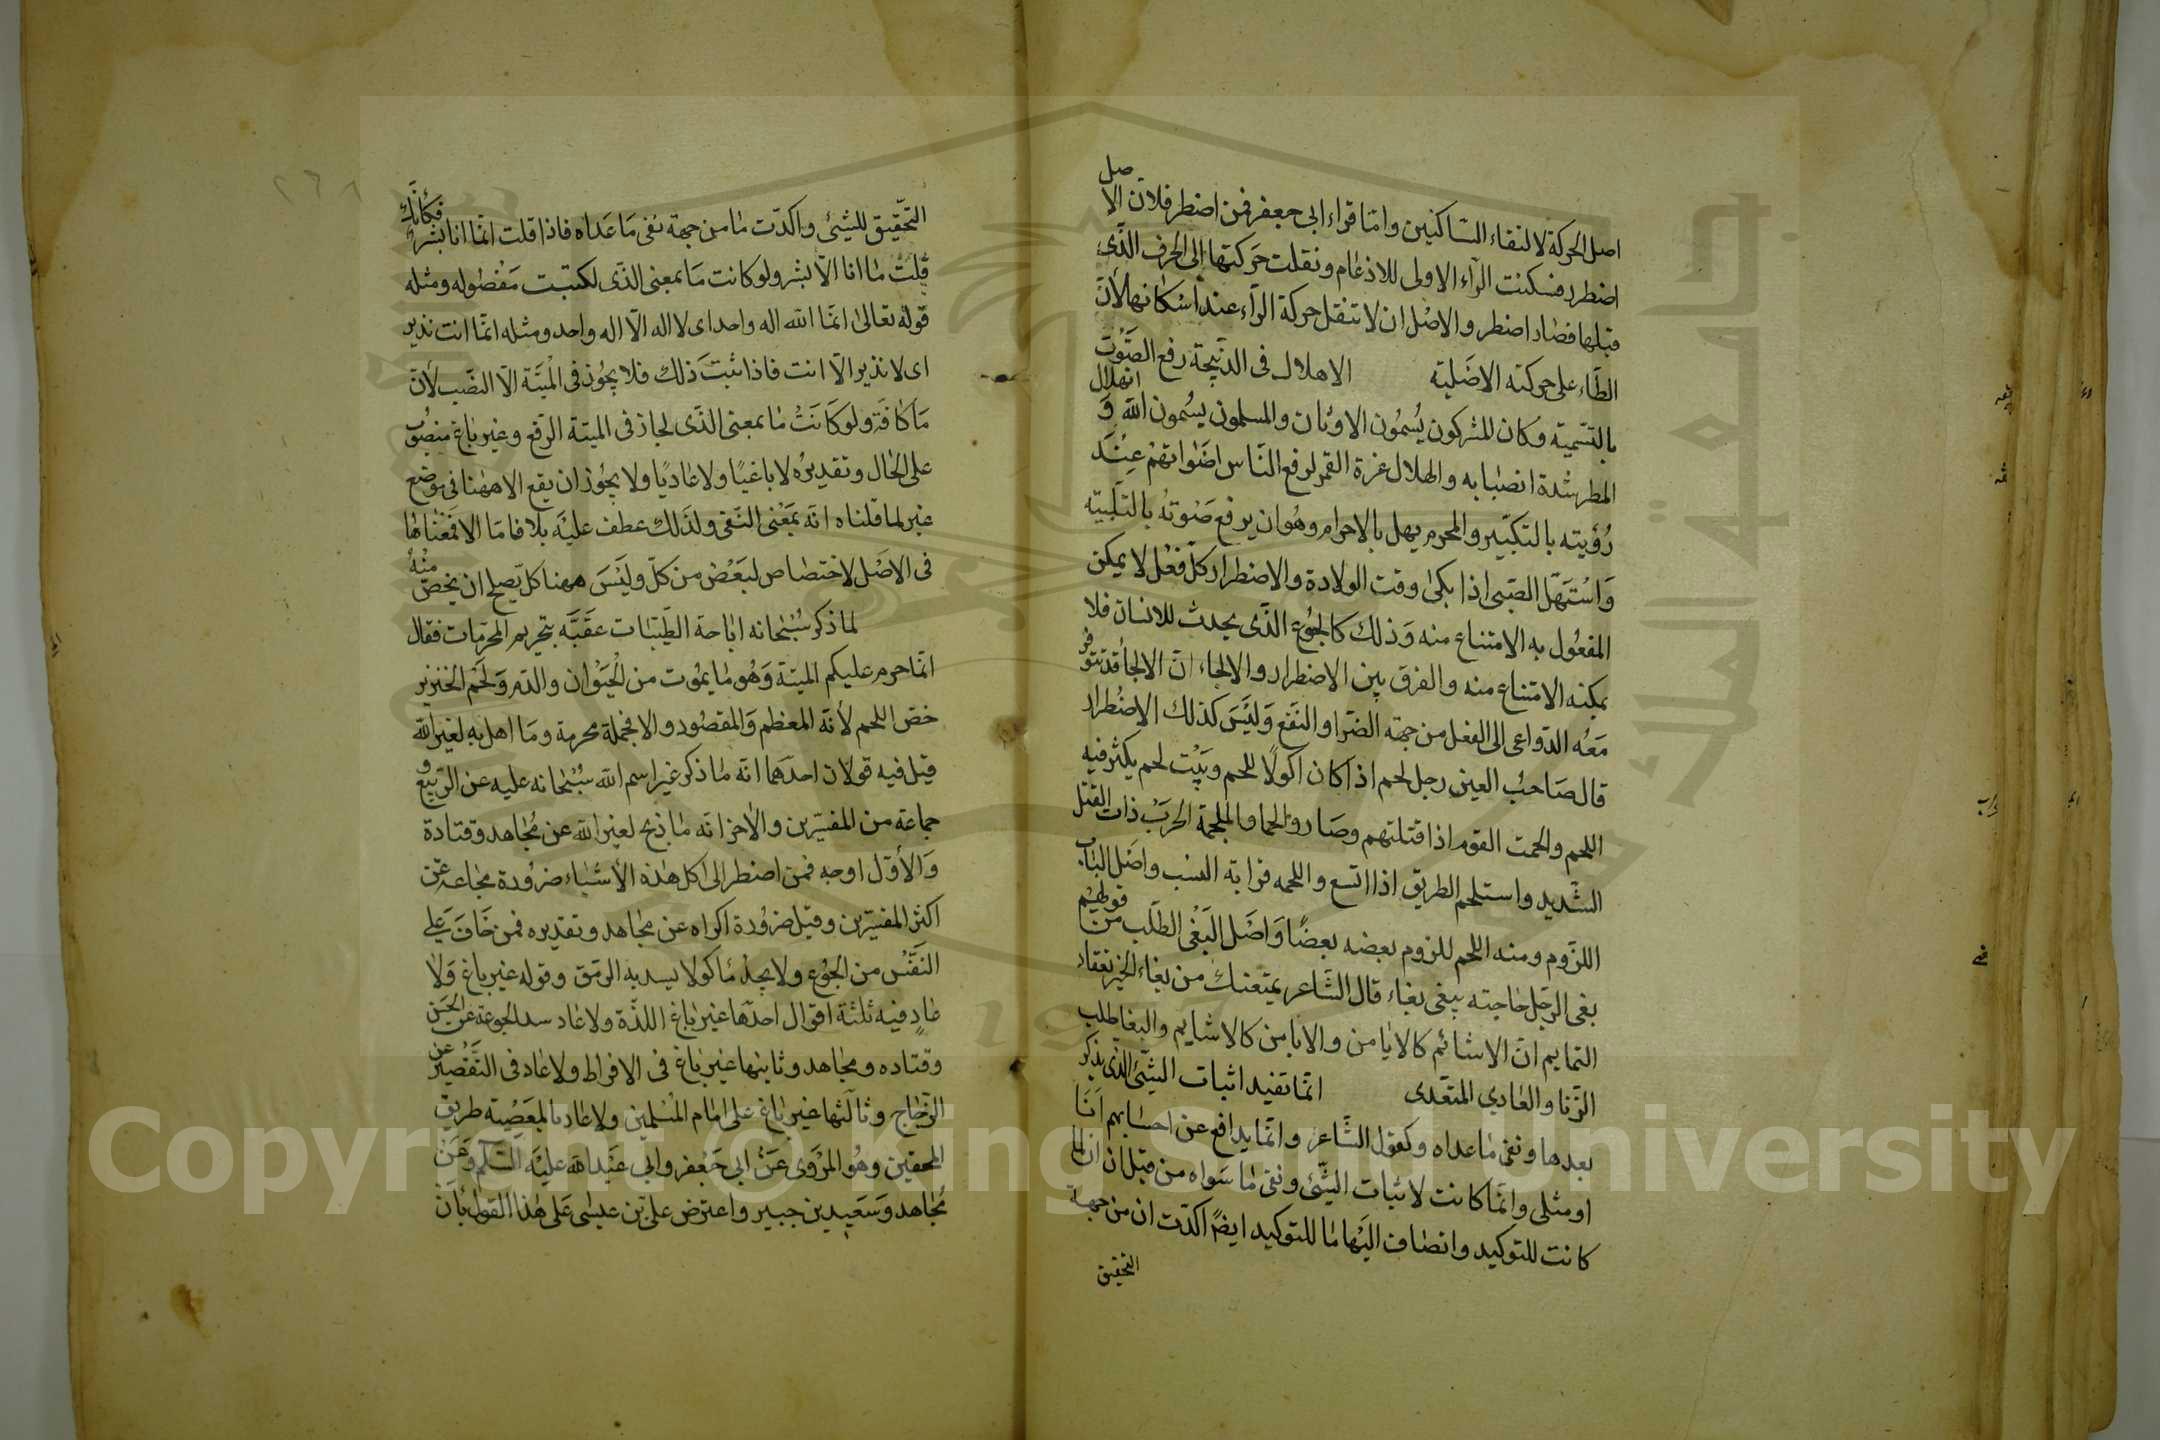 اصل الحركة لالتقاء الساكنين واما قراءة ابي جعفر فمن اضطر فلان الاصل
اضطرر فسكنت الراء الاولى للادغام ونقلت حركتها الى الحرف الذي
قبلها فصار اضطر والاصل ان لا تنقل حركة الراء عند اسكانها لان
الطاء على حركته الاصلية الاهلال في الذبيحة رفع الصوت
بالتسمية وكان المشركون يسمون الاوثان والمسلمون يسمون الله وانهلال
المطر شدة انصبابه والهلال غرة القمر لرفع الناس اصواتهم عند
رؤيته بالتكبير والمحرم يهل بالاحرام وهو ان يرفع صوته بالتلبية
واستهل الصبي اذا بكى وقت الولادة والاضطرار كل فعل لا يمكن
المفعول به الامتناع منه وذلك كالجوع الذي يحدث للانسان فلا
يمكنه الامتناع منه والفرق بين الاضطرار والالجاء ان الالجا قد تتوفر
معه الدواعي الى الفعل من جهة الضر او النفع وليس كذلك الاضطرار
قال صاحب العين رجل لحم اذا كان اكولا للحم وبيت لحم يكثر فيه
اللحم والحمت القوم اذا قتلتهم وصاروا لحما والملحمة الحرب ذات القتل
الشديد واستلحم الطريق اذا اتسع واللحمه قرابة النسب واصل الباب
اللزوم ومنه اللحم للزوم بعضه بعضا واصل البغي الطلب من قولهم
بغى الرجل حاجته يبغي بغاء قال الشاعر يمنعنك من بغاء الخير تعقاد
التمايم ان الاشائم كالايامن والايامن كالاشايم والبغا طلب
الزنا والعادي المتعدي انما تفيد اثبات الشئ الذي يذكر
بعدها ونفي ما عداه وكقول الشاعر وانما يدافع عن احسابهم انا
او مثلي وانما كانت لاثبات الشئ ونفي ما سواه من قبل ان ان لما
كانت للتوكيد وانضاف اليها ما للتوكيد ايضا اكدت ان من جهة
التحقيق
التحقيق للشئ واكدت ما من جهة نفي ما عداه فاذا قلت انما انا بشر فكانك
قلت ما انا الا بشر ولو كانت ما بمعنى الذي لكتبت مفصوله ومثله
قوله تعالى انما الله اله واحد اي لا اله الا اله واحد ومثله انما انت نذير
اي لا نذير الا انت فاذا ثبت ذلك فلا يجوز في الميتة الا النصب لان
ما كافة ولو كانت ما بمعنى الذي لجاز في الميتة الرفع وغير باغ منصوب
على الحال وتقديره لا باغيا ولا عاديا ولا يجوز ان يقع الا ههنا في موضع
غير لما قلناه انه بمعنى النفي ولذلك عطف عليه بلا فاما الا فمعناها
في الاصل لاختصاص لبعض من كل وليس ههنا كل يصلح ان يخص منه
لما ذكر سبحانه اباحة الطيبات عقبه بتحريم المحرمات فقال
انما حرم عليكم الميتة وهو ما يموت من الحيوان والدم ولحم الخنزير
خص اللحم لانه المعظم والمقصود والا فجملة محرمة وما اهل به لغير الله
قيل فيه قولان احدهما انه ما ذكر غير اسم الله سبحانه عليه عن الربيع و
جماعة من المفسرين والاخر انه ما ذبح لغير الله عن مجاهد وقتادة
والاول اوجه فمن اضطر الى اكل هذه الاشياء ضرورة مجاعه عن
اكثر المفسرين وقيل ضرورة اكراه عن مجاهد وتقديره فمن خاف على
النفس من الجوع ولا يجد ماكولا يسد به الرمق وقوله غير باغ ولا
عاد فيه ثلثة اقوال احدها غير باغ اللذة ولا عاد سد الجوعة عن الحسن
وقتاده ومجاهد وثانيها غير باغ في الافراط ولا عاد في التقصير عن
الزجاج وثالثها غير باغ على امام المسلمين ولا عاد بالمعصية طريق
المحقين وهو المروي عن ابي جعفر وابي عبد الله عليه السلم وعن
مجاهد وسعيد بن جبير واعترض علي بن عيسى على هذا القول بان
Copyright © King Saud University